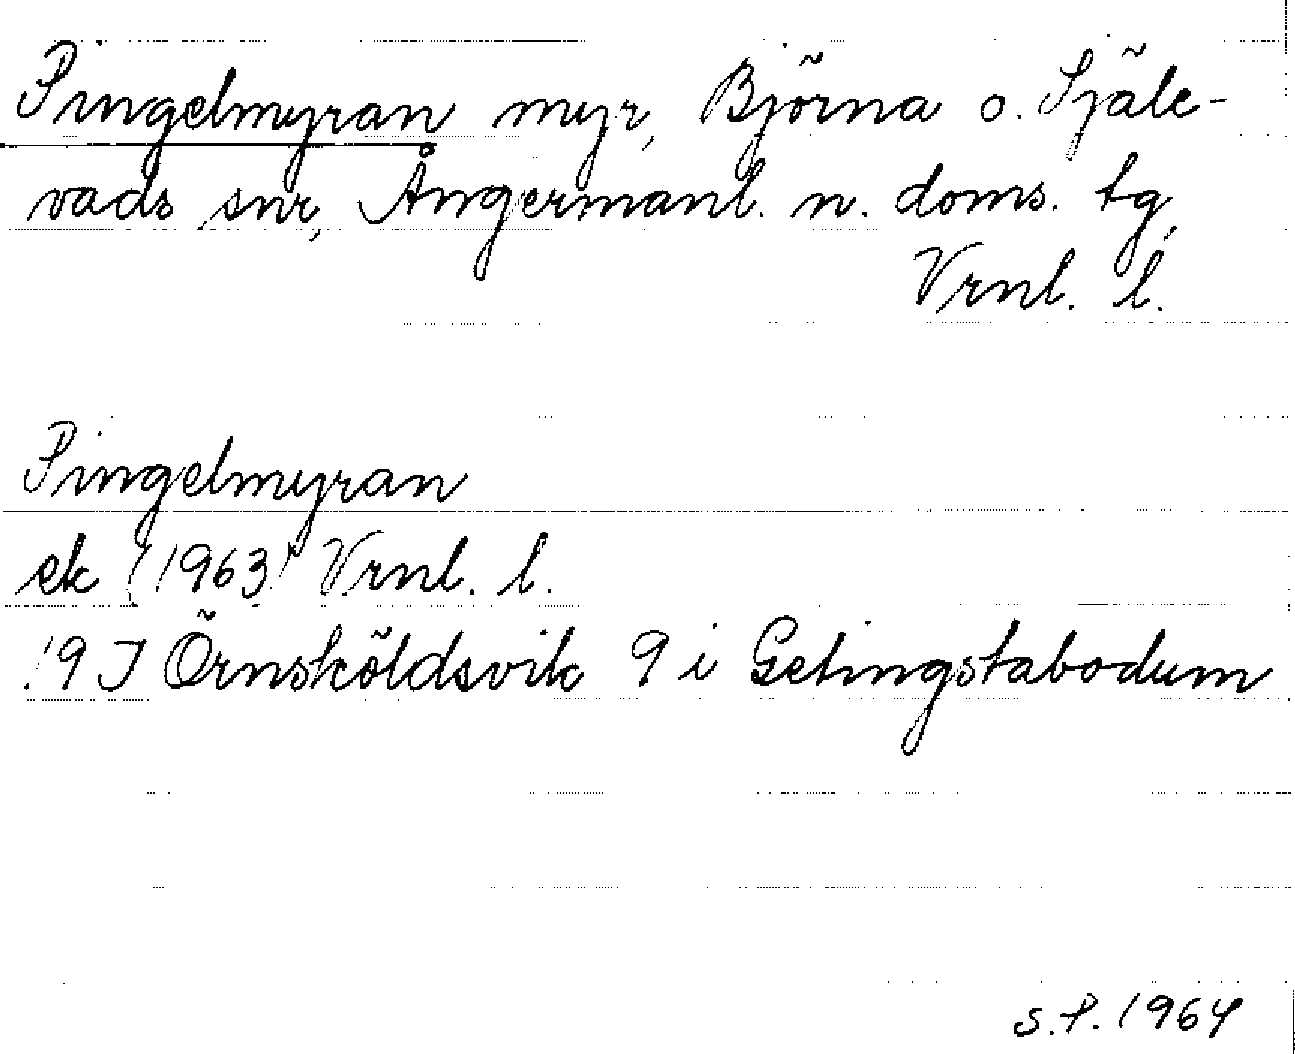 Pingelmyran myr, Björna o. Själe-
vads snr, Ångermanl. n. doms. tg,
Vrnl. l.
Pingelmyran
ek (1963) Vrnl. l.
19 J Örnsköldsvik 9 i Getingstabodum
S.P. 1964